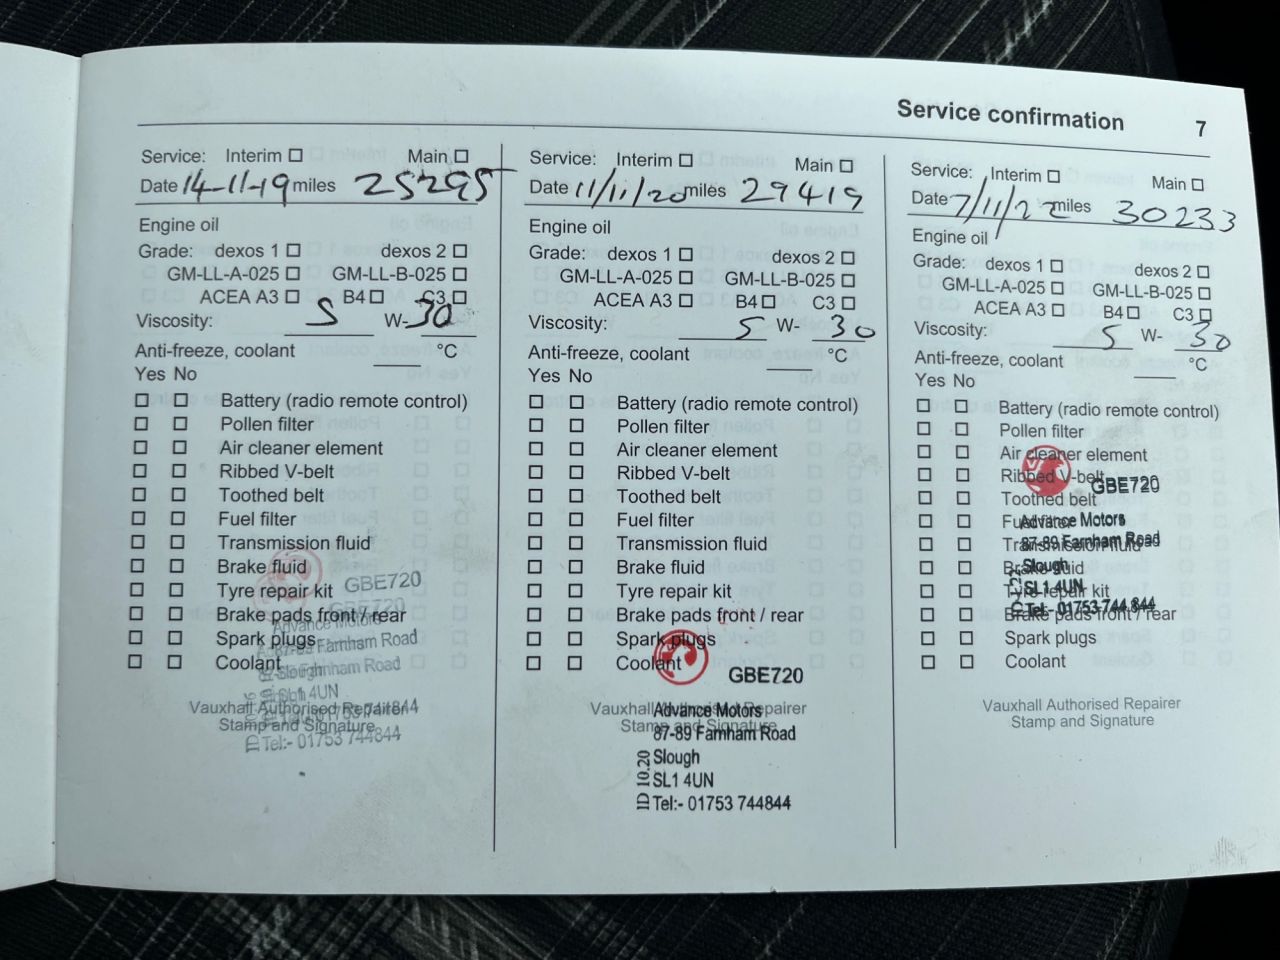 Service confirmation 7
Service: Interim Main
Date 14-11-19 miles 25295
Engine oil
Grade: dexos 1 dexos 2
GM-LL-A-025 GM-LL-B-025
ACEA A3 B4 C3
Viscosity: 5 W-30
Anti-freeze, coolant °C
Yes No
Battery (radio remote control)
Pollen filter
Air cleaner element
Ribbed V-belt
Toothed belt
Fuel filter
Transmission fluid
Brake fluid
Tyre repair kit
Brake pads front / rear
Spark plugs
Coolant
GBE720
GBE720
Advance Motors
87-89 Farnham Road
Slough
4UN
Tel:- 01753 744844
Vauxhall Authorised Repairer
Stamp and Signature
Service: Interim Main
Date 11/11/20 miles 29419
Engine oil
Grade: dexos 1 dexos 2
GM-LL-A-025 GM-LL-B-025
ACEA A3 B4 C3
Viscosity: 5 W- 30
Anti-freeze, coolant °C
Yes No
Battery (radio remote control)
Pollen filter
Air cleaner element
Ribbed V-belt
Toothed belt
Fuel filter
Transmission fluid
Brake fluid
Tyre repair kit
Brake pads front / rear
Spark plugs
Coolant
GBE720
Vauxhall Authorised Repairer
Stamp and Signature
Advance Motors
87-89 Farnham Road
Slough
SL1 4UN
Tel:- 01753 744844
ID 10.20
Service: Interim Main
Date 7/11/22 miles 30233
Engine oil
Grade: dexos 1 dexos 2
GM-LL-A-025 GM-LL-B-025
ACEA A3 B4 C3
Viscosity: 5 W- 30
Anti-freeze, coolant °C
Yes No
Battery (radio remote control)
Pollen filter
Air cleaner element
Ribbed V-belt
Toothed belt
Fuel filter
Transmission fluid
Brake fluid
Tyre repair kit
Brake pads front / rear
Spark plugs
Coolant
GBE720
Advance Motors
87-89 Farnham Road
Slough
SL1 4UN
Tel:- 01753 744 844
Vauxhall Authorised Repairer
Stamp and Signature